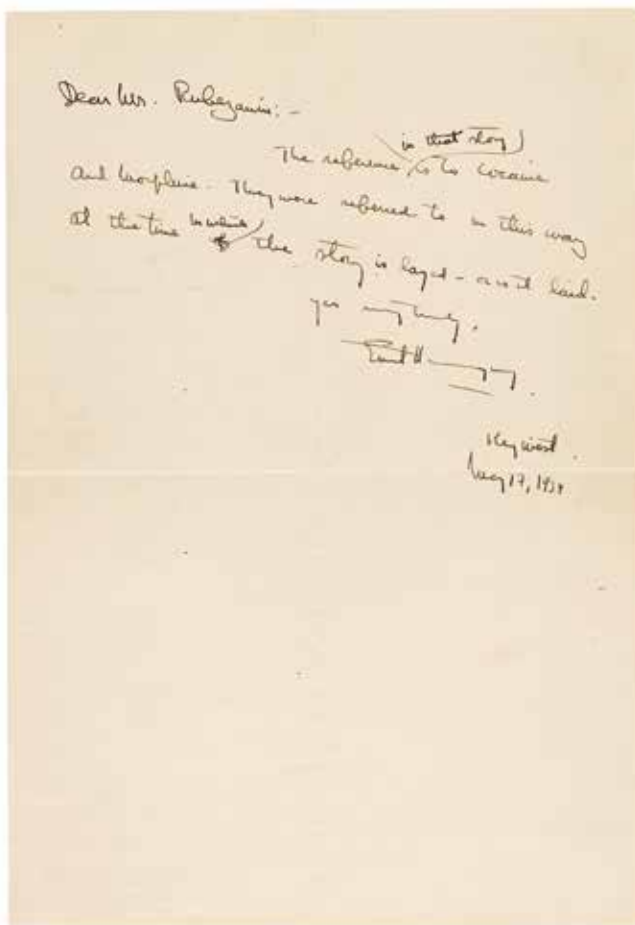 Dear Mr. Rubezanin:-
in that story
The reference is to Cocaine
and Morphine. They were referred to in this way
at the time in which the story is layed - or is it laid.
yrs very truly,
Ernest Hemingway.
Key West.
May 17, 1934